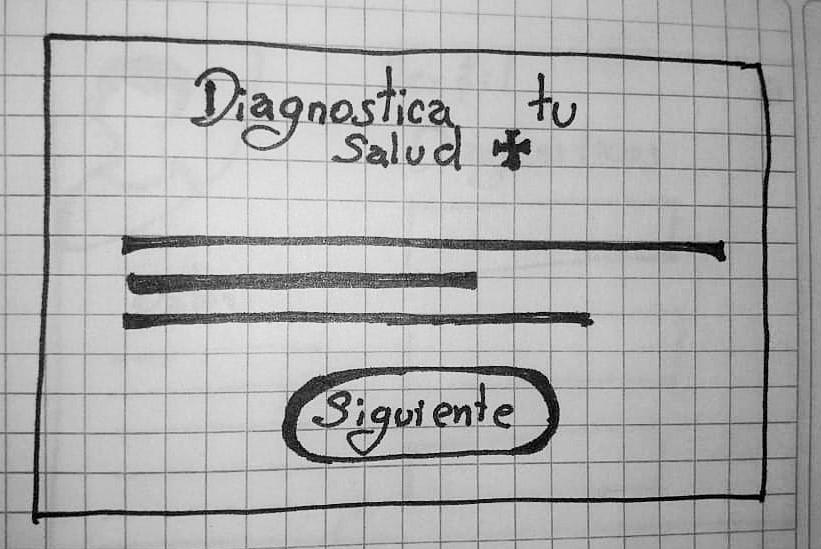 Diagnostica tu
Salud
Siguiente